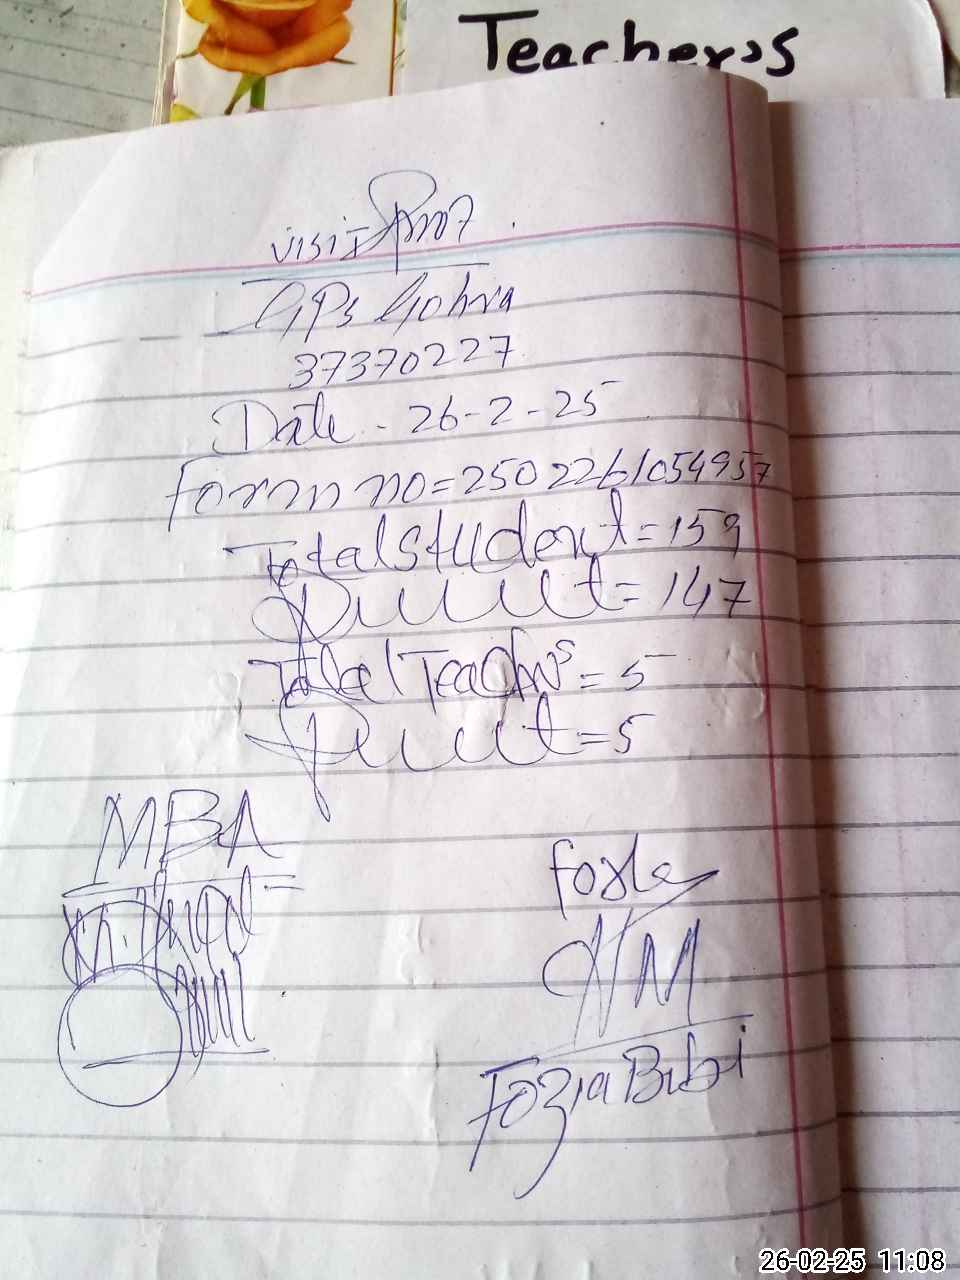 Teacher,s
visit
GPs Gohra
37370227
Date - 26-2-25
Form no=2502261054957
Total Student=159
Present=147
Total Teachers=5
Present=5
MBA
Fozia
HM
Fozia Bibi
26-02-25 11:08